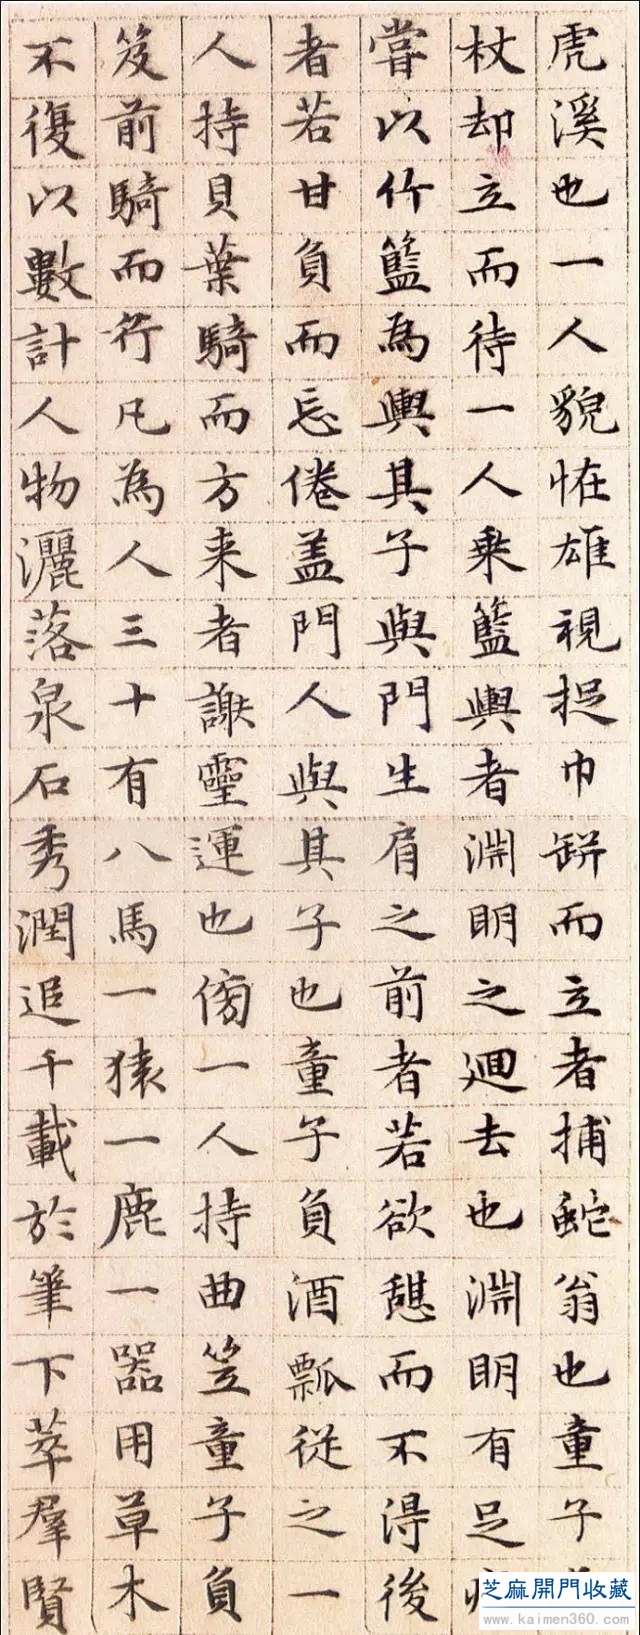 虎溪也一人貌恠雄視捉巾缾而立者捕蛇翁也童子
杖却立而待一人乘籃輿者淵明之廻去也淵明有足
嘗以竹籃為輿其子與門生肩之前者若欲憩而不得後
者若甘負而忘倦盖門人與其子也童子負酒瓢從之一
人持貝葉騎而方来者謝靈運也傍一人持曲笠童子負
笈前騎而行凡為人三十有八馬一猿一鹿一器用草木
不復以數計人物灑落泉石秀潤追千載於筆下萃羣賢
芝麻開門收藏
www.kaimen360.com